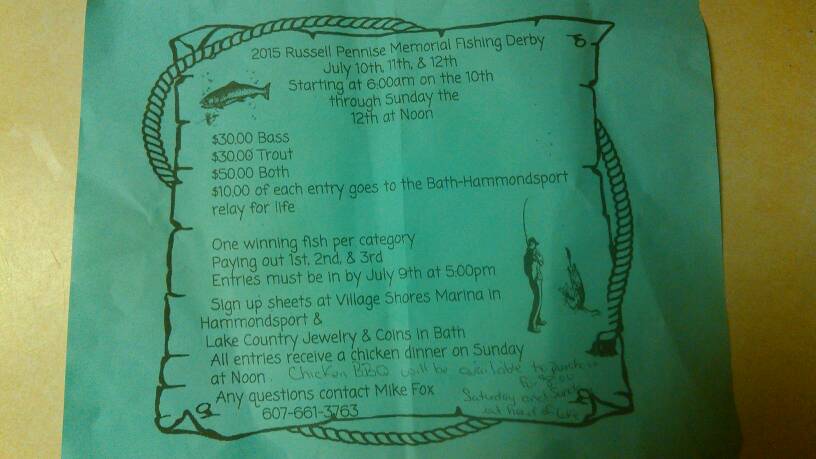 2015 Russell Pennise Memorial Fishing Derby
July 10th, 11th, & 12th
Starting at 6:00am on the 10th
through Sunday the
12th at Noon
$30.00 Bass
$30.00 Trout
$50.00 Both
$10.00 of each entry goes to the Bath-Hammondsport
relay for life
One winning fish per category
Paying out 1st, 2nd, & 3rd
Entries must be in by July 9th at 5:00pm
Sign up sheets at Village Shores Marina in
Hammondsport &
Lake Country Jewelry & Coins in Bath
All entries receive a chicken dinner on Sunday
at Noon. Chicken BBQ will be available to purchase
for
Saturday and Sunday
at head of lake
Any questions contact Mike Fox
607-661-3763